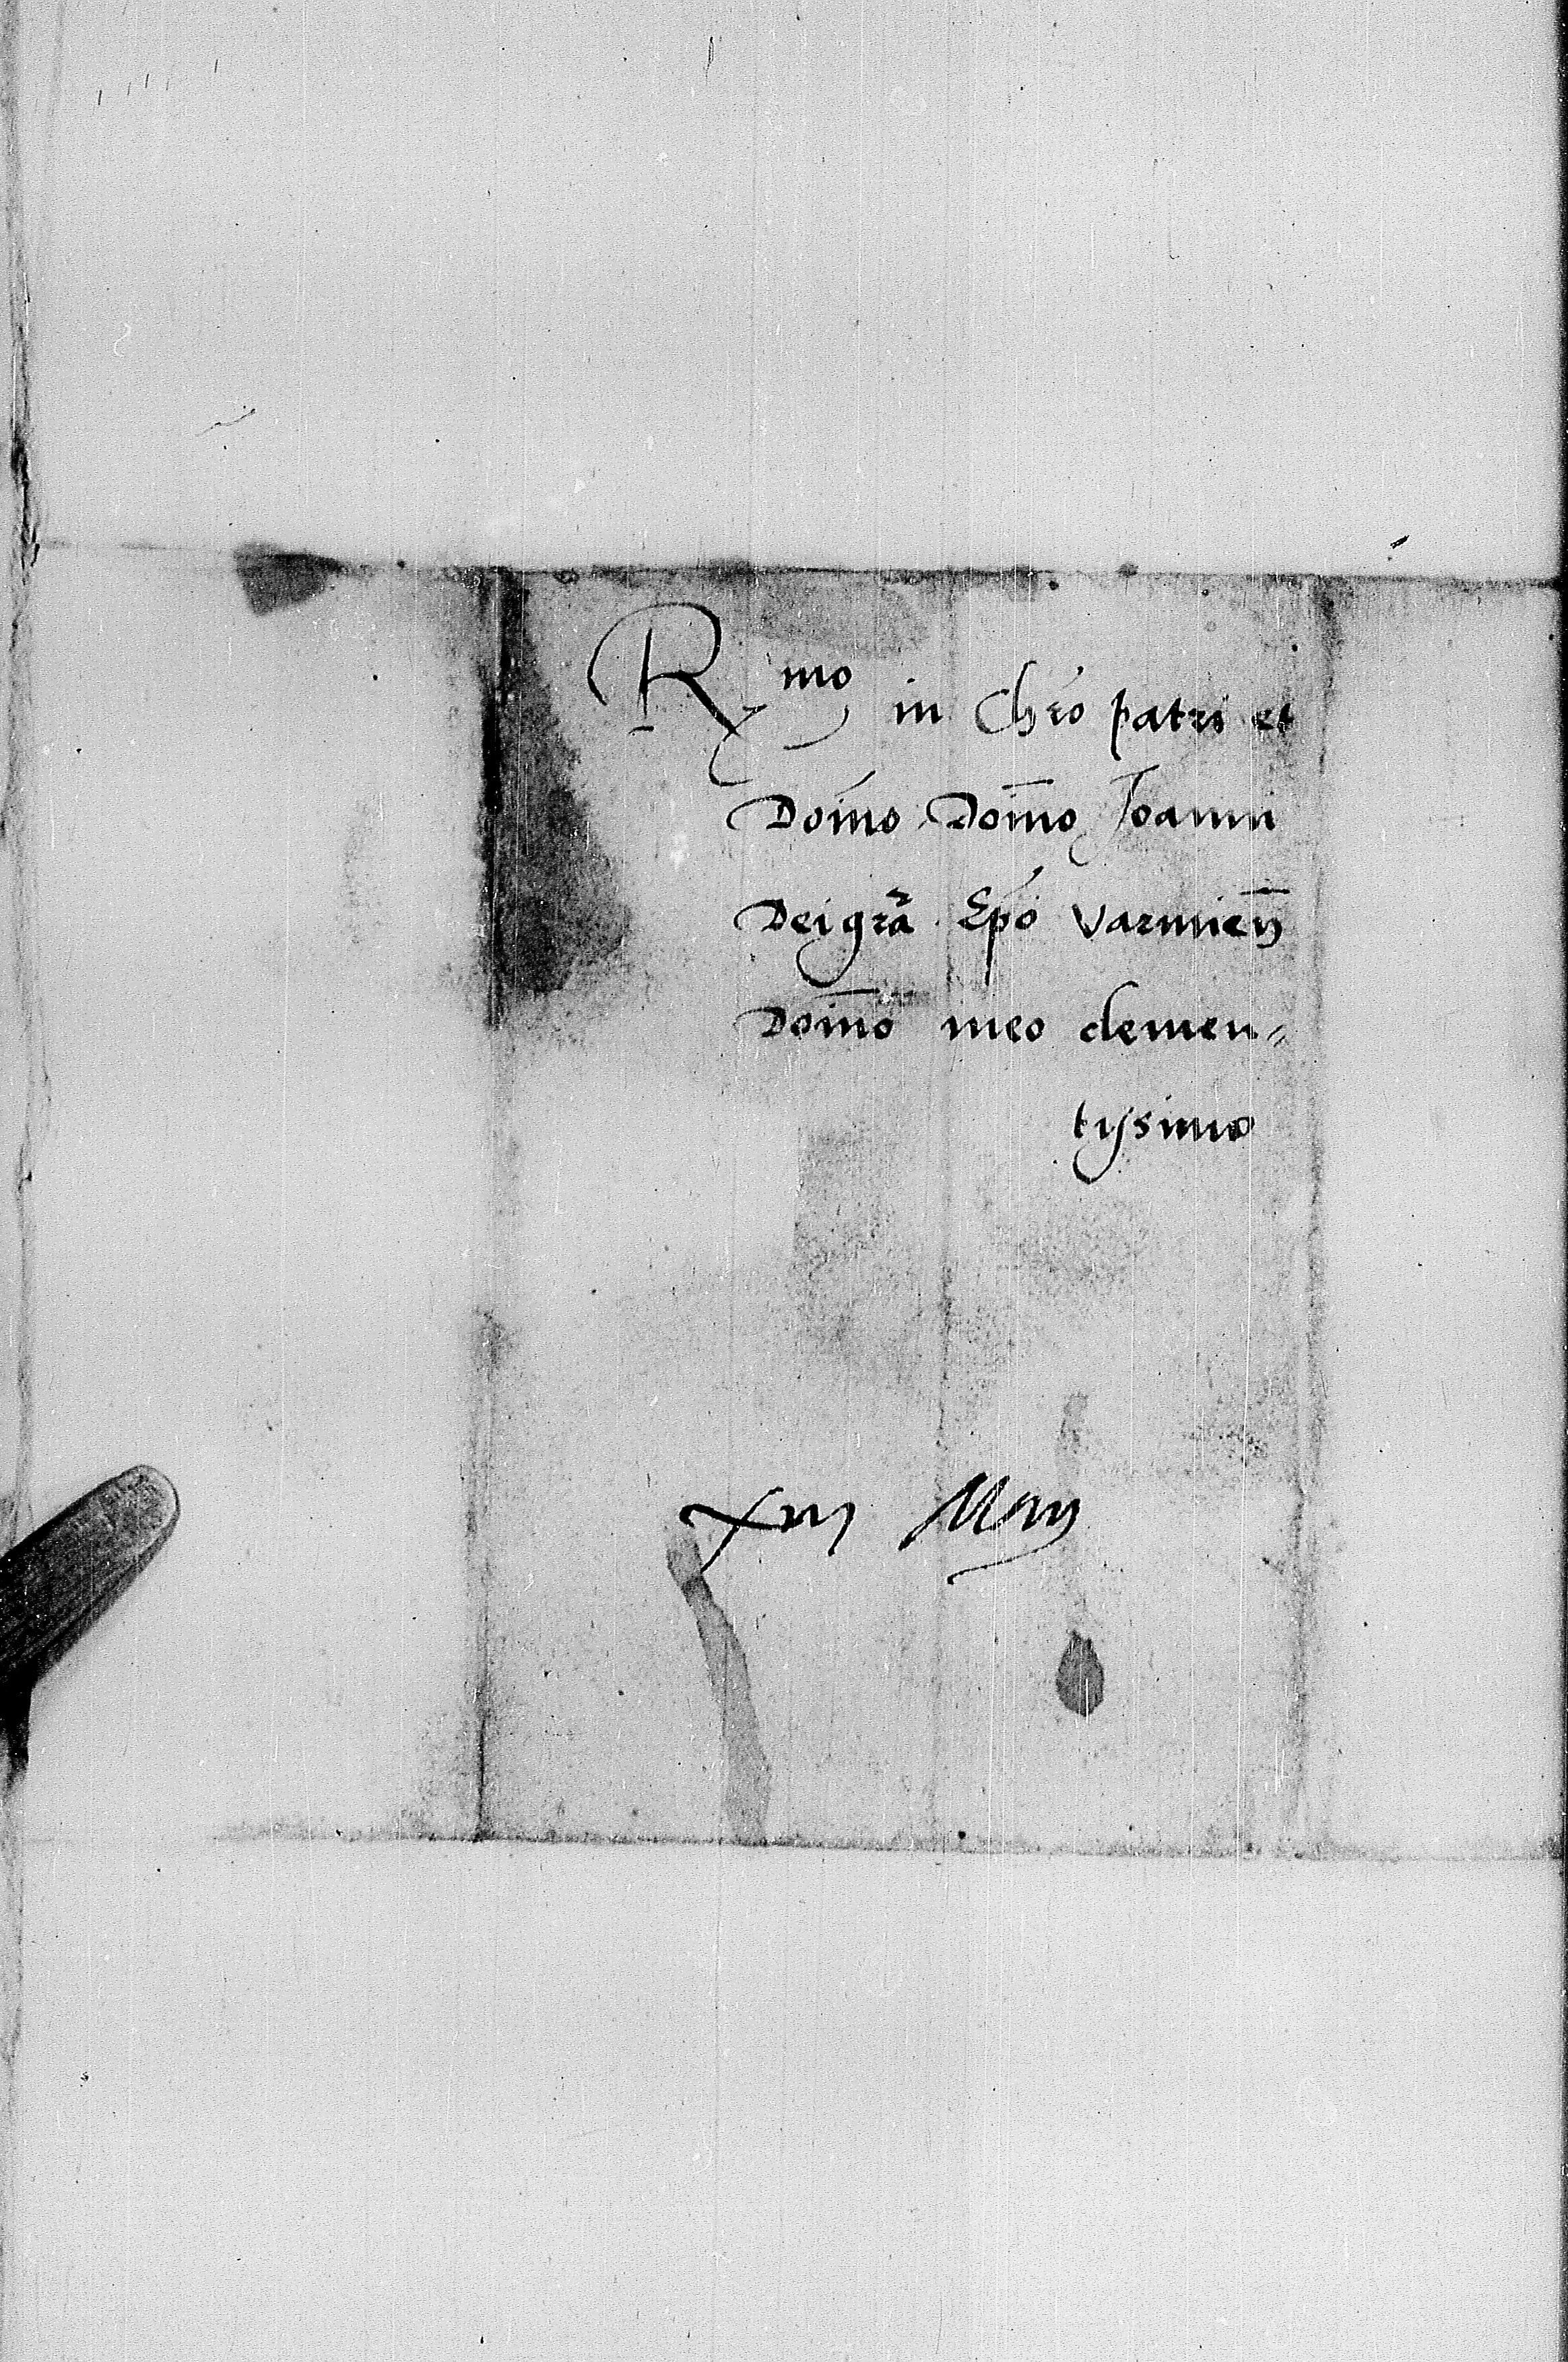 Rmo in Chro patri et
Domo Domo Joanni
Dei gra Epo Varmien
Domo meo clemen=
tissimo